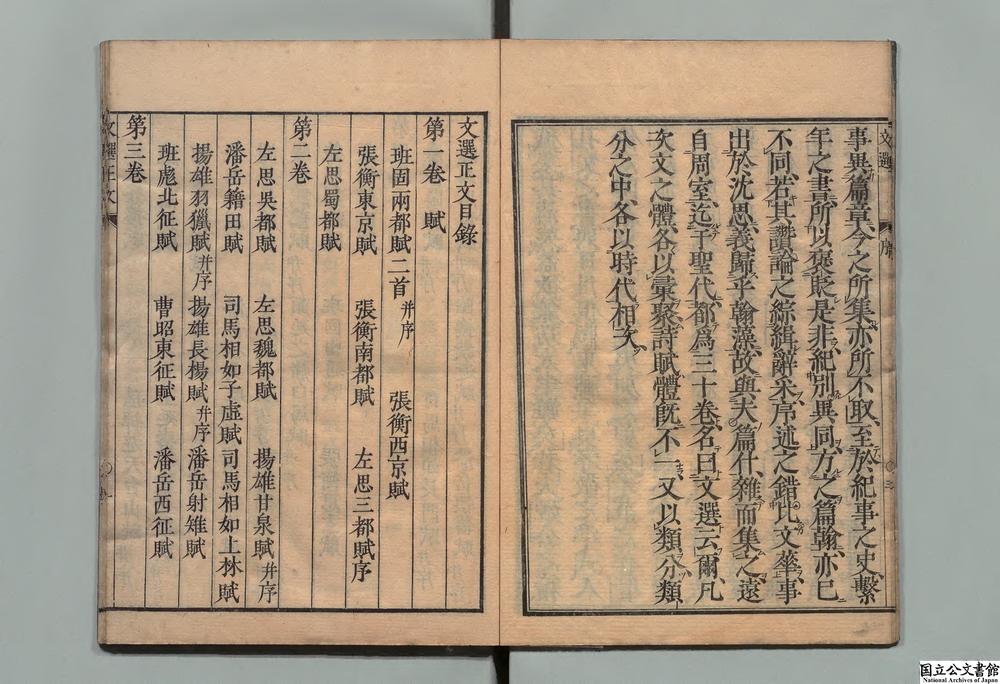 文選 序 三
事異篇章今之所集亦所不取至於紀事之史繫
年之書所以褒貶是非紀別異同方之篇翰亦已
不同若其讚論之綜緝辭采序述之錯比文華事
出於沈思義歸乎翰藻故與夫篇什雜而集之遠
自周室迄于聖代都爲三十卷名曰文選云爾凡
次文之體各以彙聚詩賦體旣不一又以類分類
分之中各以時代相次
文選正文目錄
第一卷 賦
班固兩都賦二首并序 張衡西京賦
張衡東京賦 張衡南都賦 左思三都賦序
左思蜀都賦
第二卷
左思吳都賦 左思魏都賦 揚雄甘泉賦并序
潘岳籍田賦 司馬相如子虛賦 司馬相如上林賦
揚雄羽獵賦并序 揚雄長楊賦并序 潘岳射雉賦
班彪北征賦 曹昭東征賦 潘岳西征賦
第三卷
文選正文
国立公文書館
National Archives of Japan